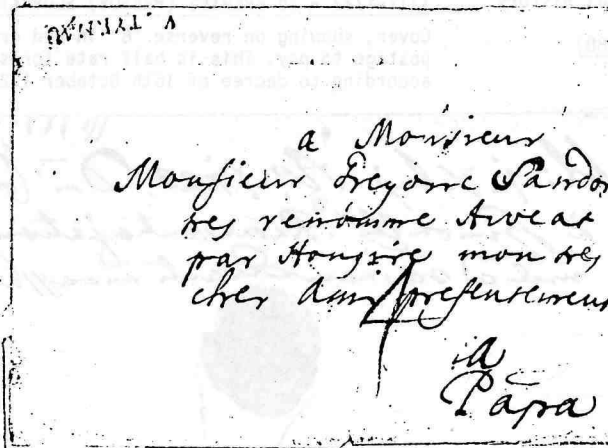 V. TYRNAU
Cover, showing on reverse
postage to pay. This is half rate
according to decree of 16th October
a Monsieur
Monsieur Sandor
tres renomme Avocat
par Hongrie mon tres
cher Ami presentement
a
Papa